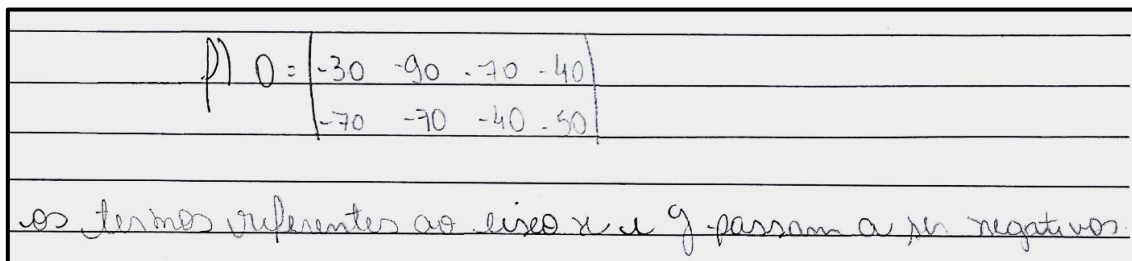 p) O = |-30 -90 -70 -40|
|-70 -70 -40 -50|
os termos referentes ao eixo x e y passam a ser negativos.